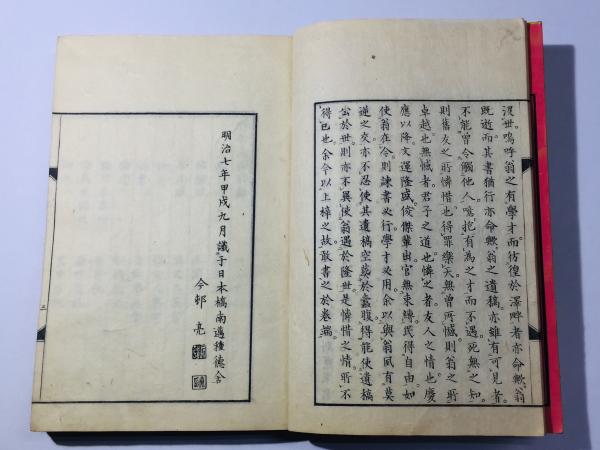 没世嗚呼翁之有學才而彷徨於澤畔者亦命歟翁
既逝而其書猶行亦命歟翁之遺稿亦雖有可見者
不能曾令觸他人嗟抱有為之才而不遇死無之知
則舊友之所憐惜也得罪樂天無曾所憾則翁之所
卓越也無憾者君子之道也憐之者友人之情也慶
應以降文運隆盛俊傑輩出官無束縛民得自由如
使翁在今則隷書必行學才必用余以與翁夙有莫
逆之交亦不忍使其遺稿空葬於蠹腹得能使遺稿
公於世則亦不異使翁遇於隆世是憐惜之情所不
得已也余今以上梓之故敢書之於卷端
明治七年甲戌九月識于日本橋南邁種德舍
今邨亮
三